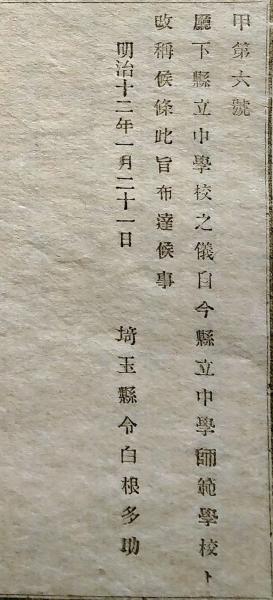 甲第六號
廳下縣立中學校之儀自今縣立中學師範學校ト
改稱候條此旨布達候事
明治十二年一月二十一日 埼玉縣令白根多助